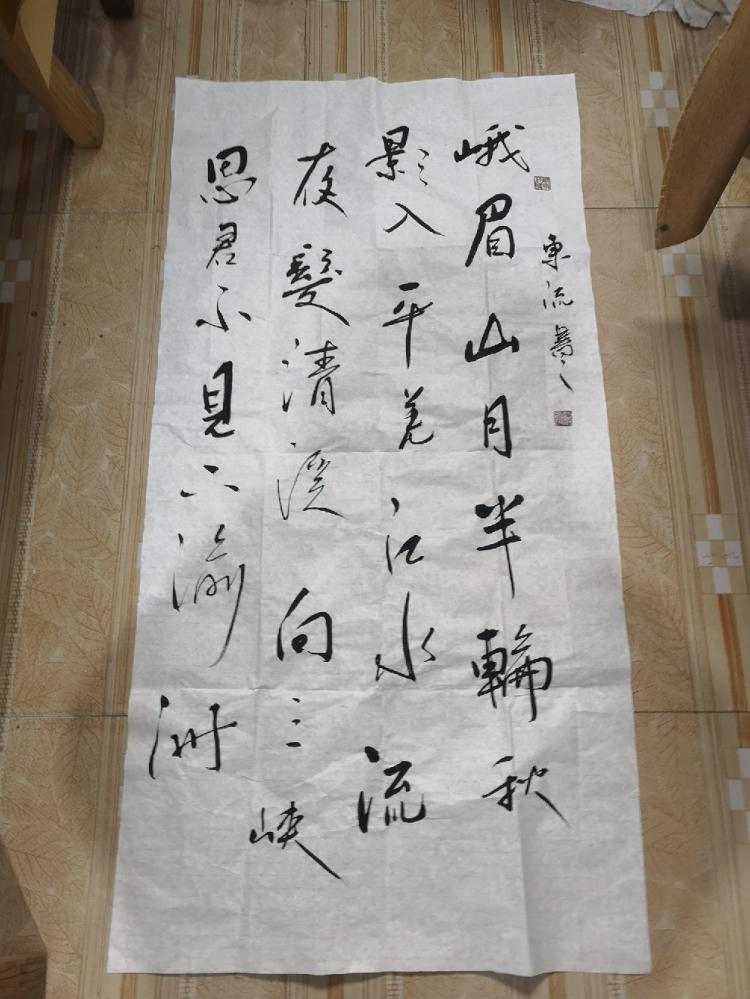 峨眉山月半輪秋
影入平羌江水流
夜髮清溪向三峡
思君不見下渝洲
東流書之